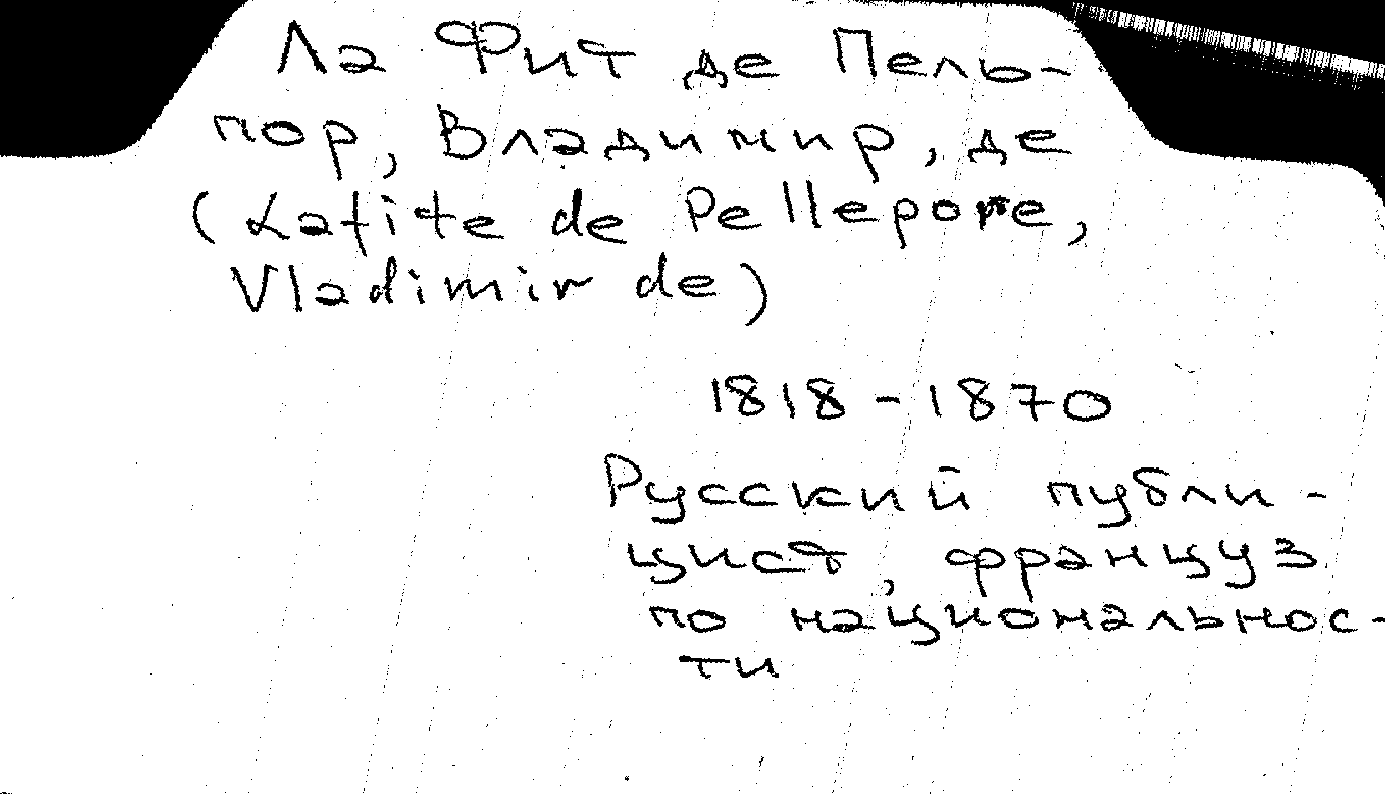 Ла Фит де Пель-
пор, Владимир, де
(Lafite de Pellepore,
Vladimir de)
1818-1870
Русский публи-
цист, француз
по национальнос-
ти